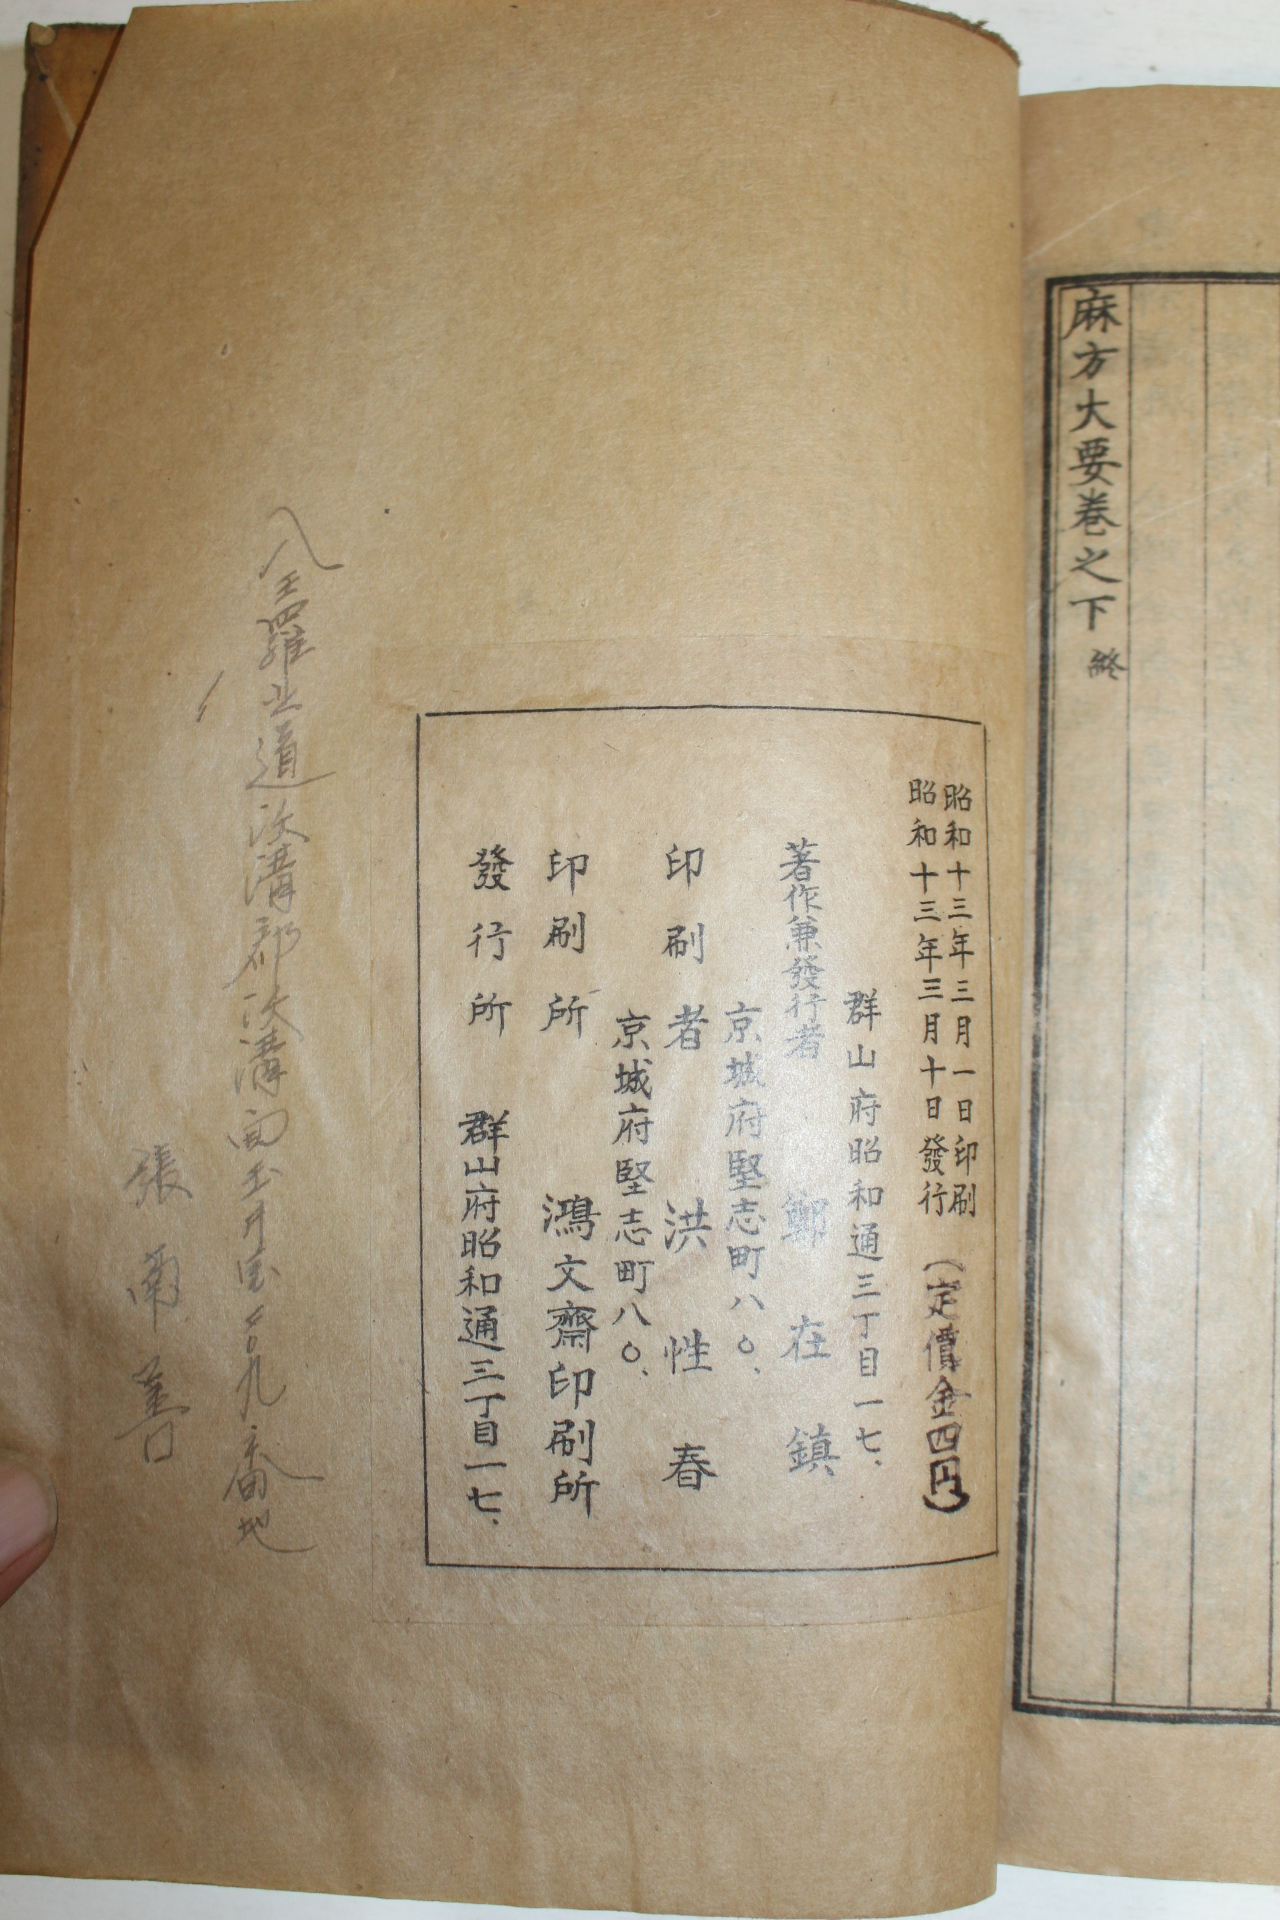 麻方大要卷之下 終
昭和十三年三月一日印刷
昭和十三年三月十日發行
(定價金四円)
群山府昭和通三丁目一七.
著作兼發行者 鄭在鎮
京城府堅志町八〇.
印刷者 洪性春
京城府堅志町八〇.
印刷所 鴻文齋印刷所
發行所 群山府昭和通三丁目一七.
全羅北道沃溝郡沃溝面玉 九番地
張 善